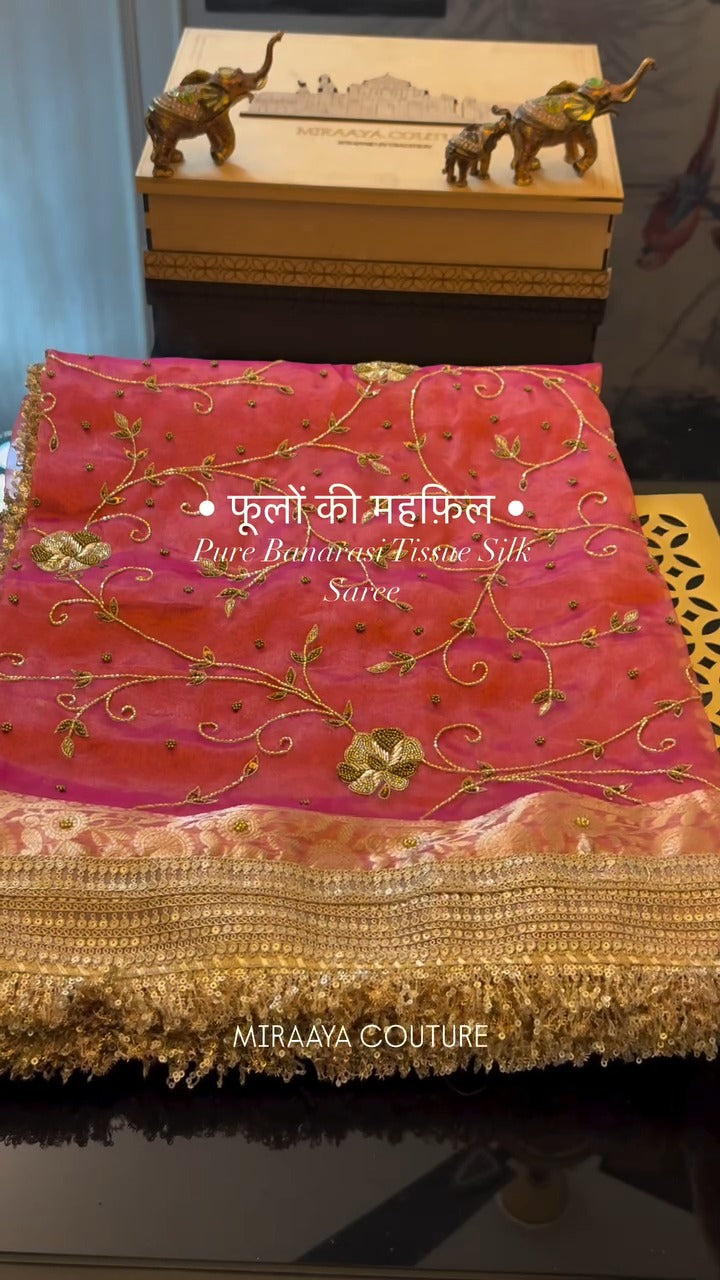 MIRAAYA COUTURE
• फूलों की महफ़िल •
Pure Banarasi Tissue Silk
Saree
MIRAAYA COUTURE